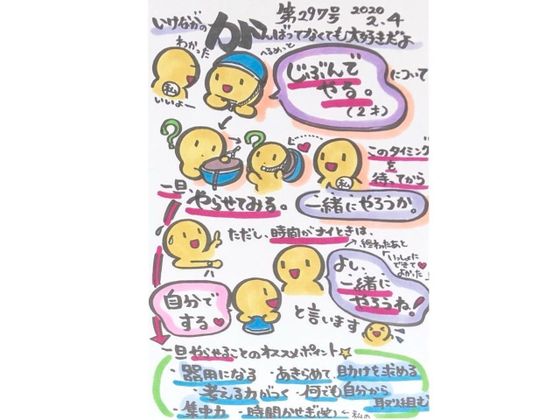 第297号 2020 2.4
いけながの がんばってなくても大好きだよ
わかった
へるめっと
私
いいよー
じぶんで
やる。
(2才)
について
?
?
私
このタイミング
を
待ってから
一緒にやろうか。
一旦、やらせてみる。
ただし、時間がナイときは、
終わったあと
「いっしょに
できて
よかった」
よし、
一緒に
やろうね!
自分で
する
と言います
一旦やらせることのオススメポイント☆
・器用になる ・あきらめて、助けを求める
・考える力がつく ・何でも自分から
取り組む
・集中力 ・時間かせぎ(笑) ←私の